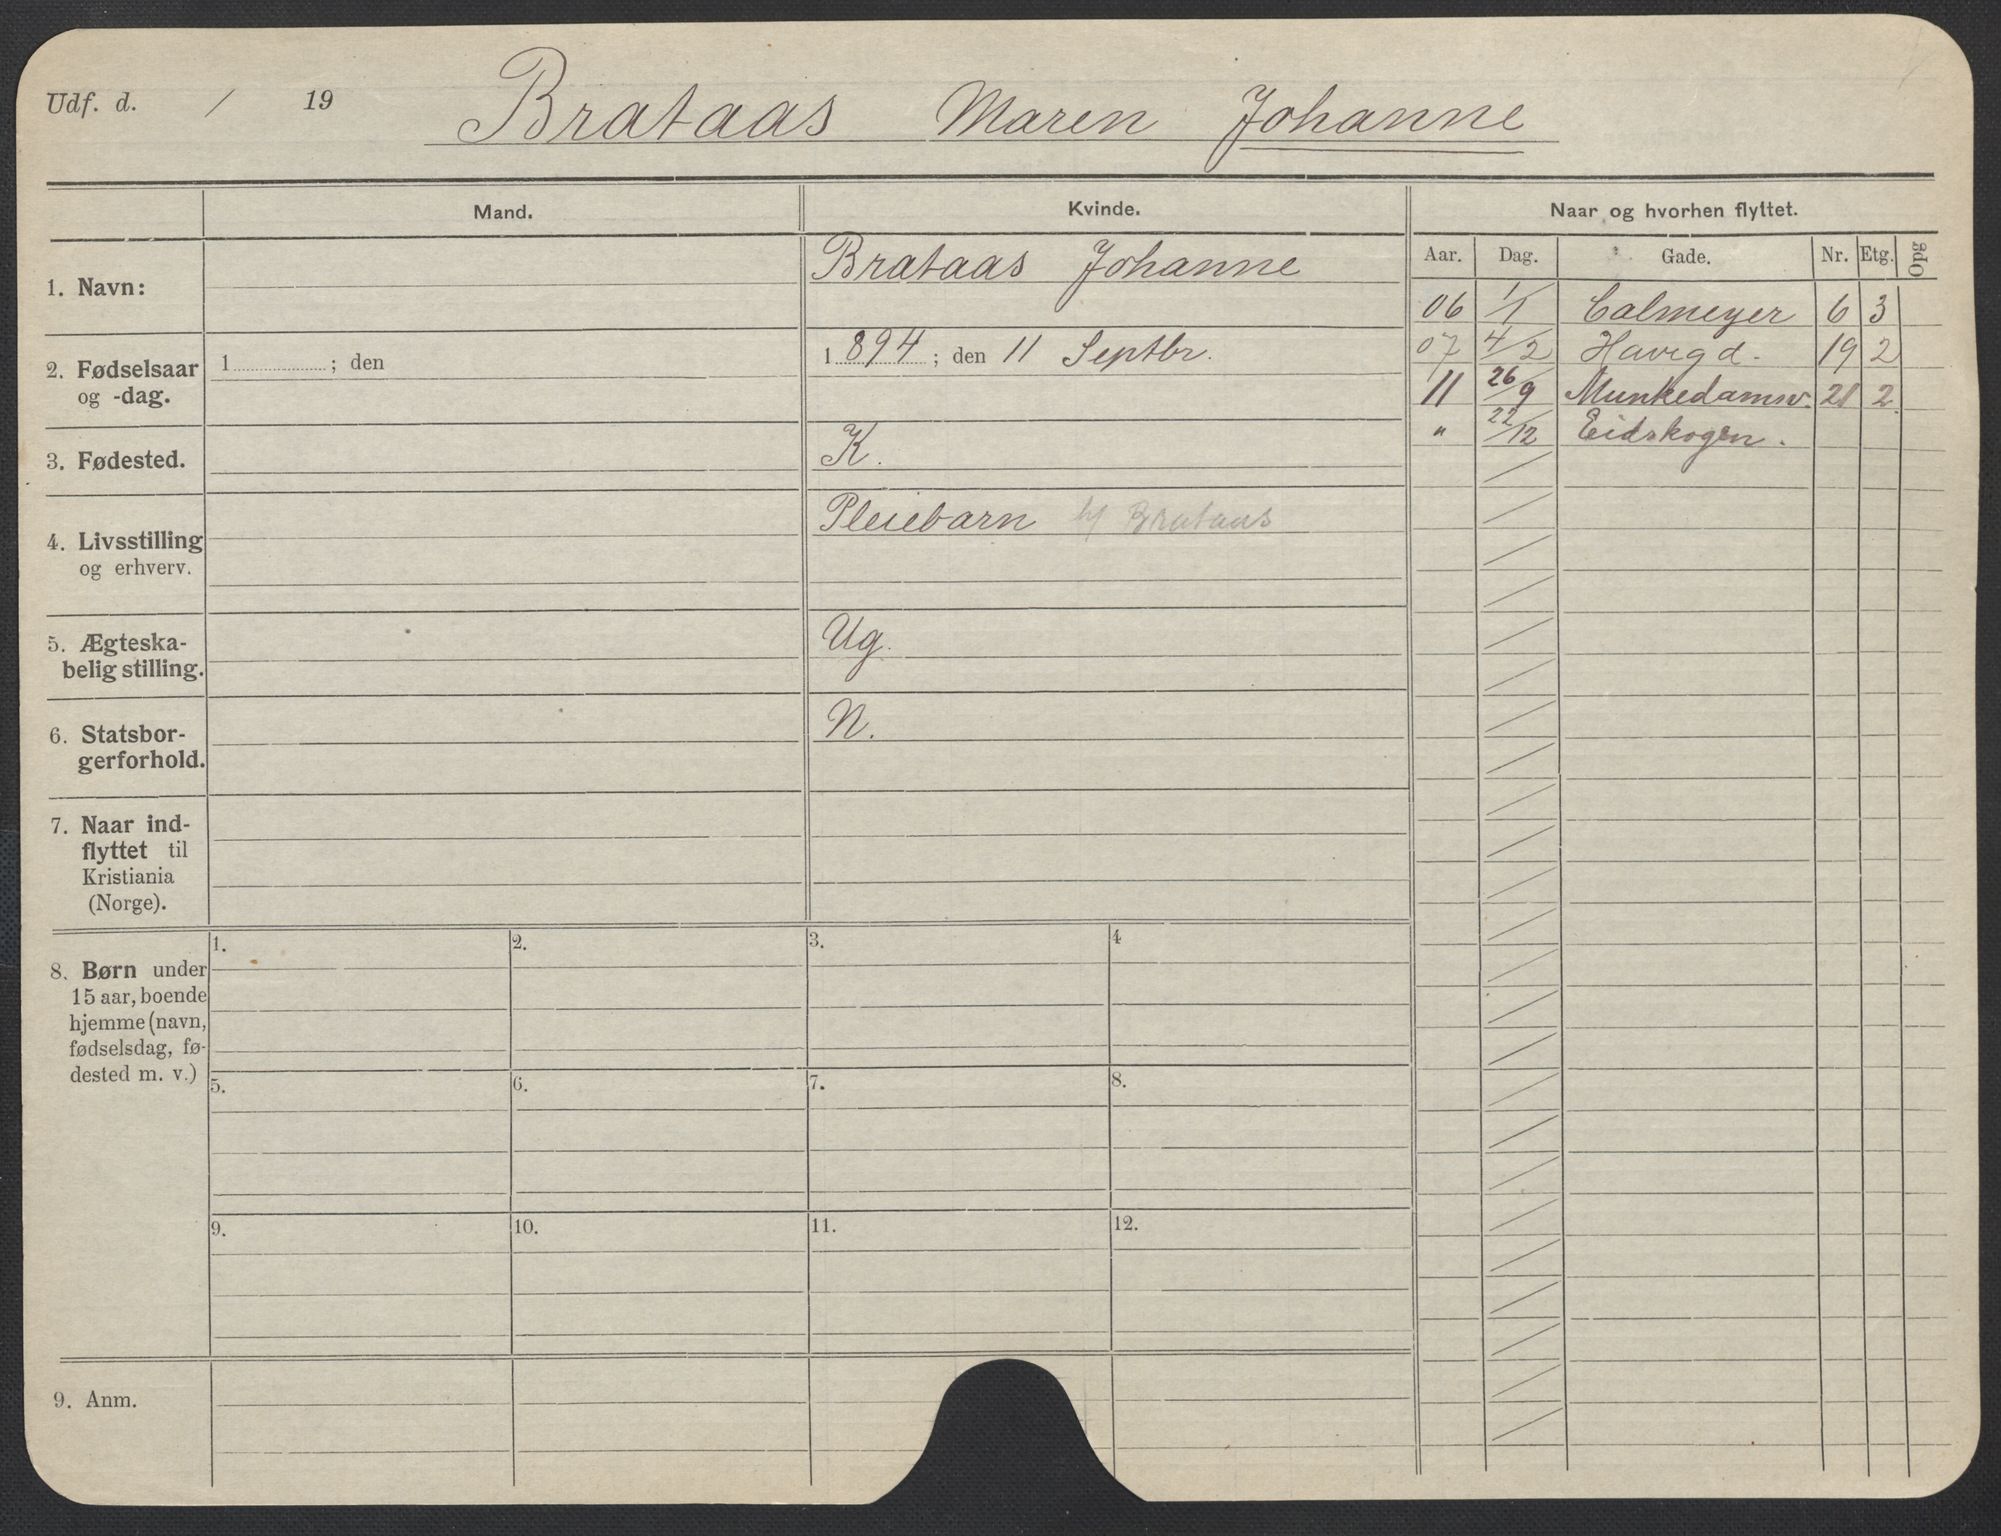 Udf. d. / 19 Brataas Maren Johanne
Mand. Kvinde. Naar og hvorhen flyttet.
Aar. Dag. Gade. Nr. Etg. Opg
1. Navn: Brataas Johanne
06 1/1 Calmeyer 6 3
07 4/2 Havegd. 19 2
11 26/9 Munkedamsv. 21 2
" 22/12 Eidskogen.
2. Fødselsaar og -dag. 1 ; den 1894 ; den 11 Septbr.
3. Fødested. K.
4. Livsstilling og erhverv. Pleiebarn h/ Brataas
5. Ægteska-
belig stilling. Ug.
6. Statsbor-
gerforhold. N.
7. Naar ind-
flyttet til
Kristiania
(Norge).
8. Børn under
15 aar, boende
hjemme (navn,
fødselsdag, fø-
dested m. v.)
1. 2. 3. 4
5. 6. 7. 8.
9. 10. 11. 12.
9. Anm.